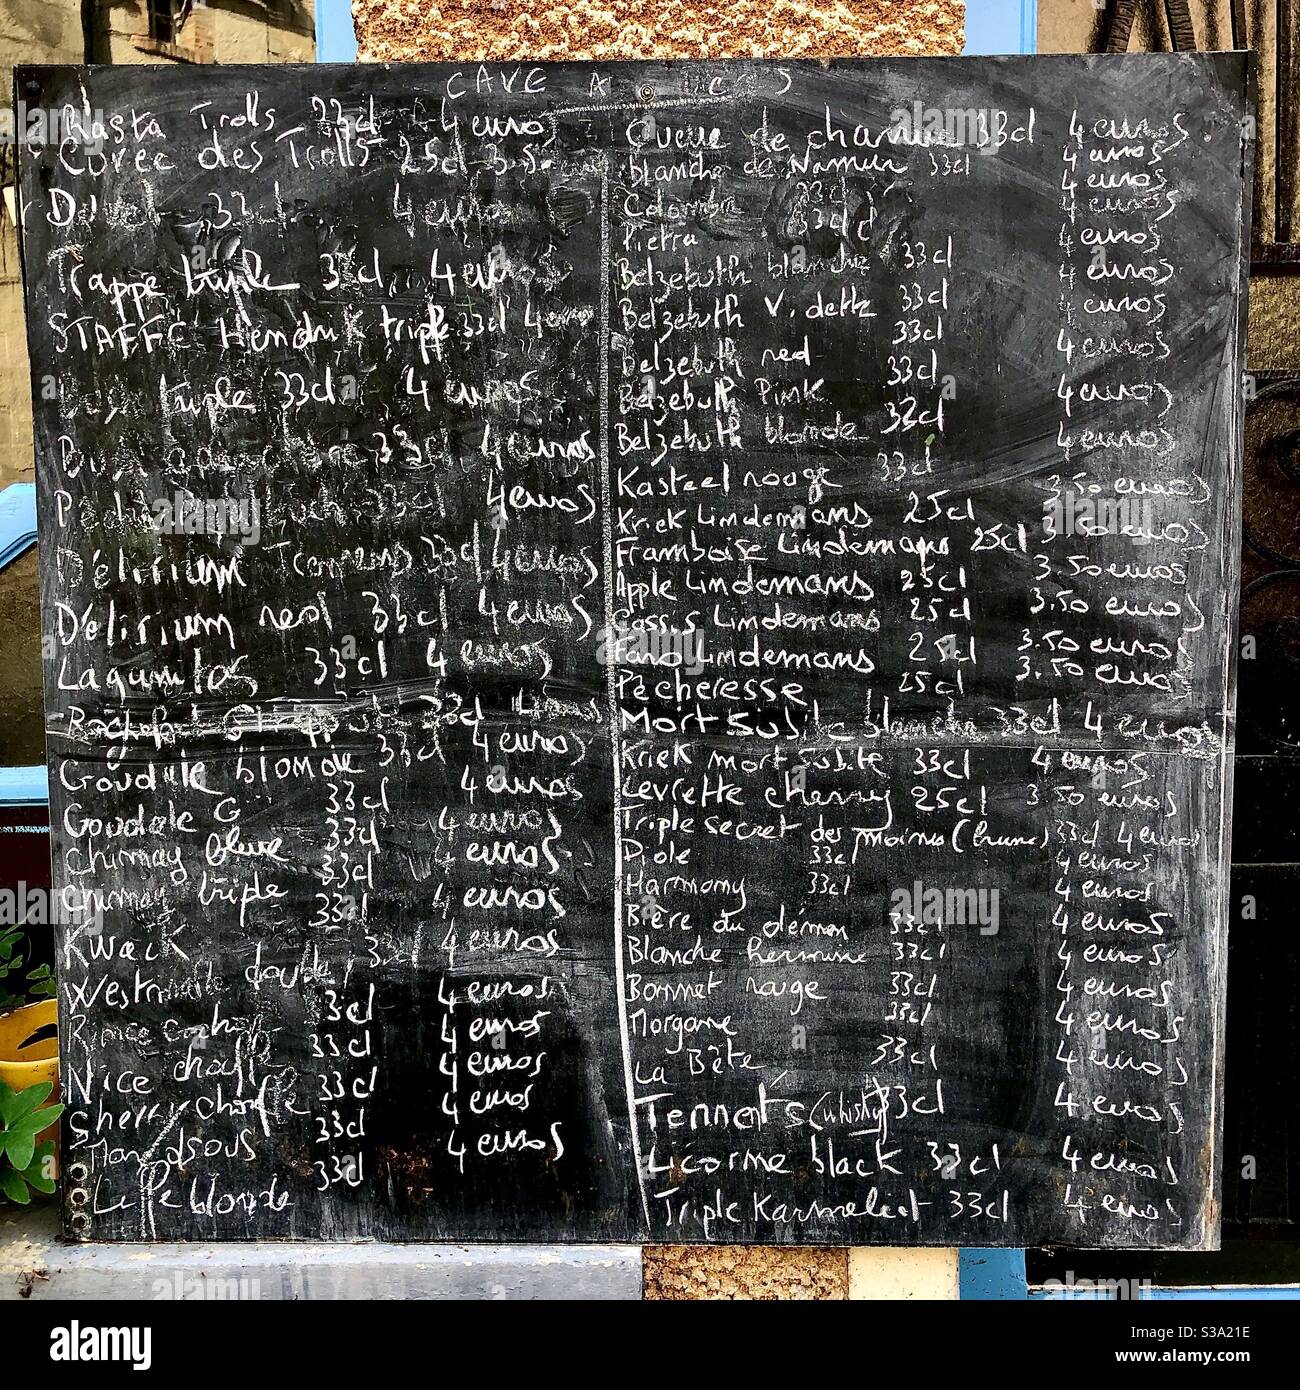 CAVE A
Rasta Trolls 33cl 4 euros
Cuvée des Trolls 25cl 3.5
33cl 4 euros
Trappe triple 33cl 4 euros
STAFFE Hendrik triple 33cl 4 euros
triple 33cl 4 euros
33cl 4 euros
33cl 4 euros
Délirium Tremens 33cl 4 euros
Délirium red 33cl 4 euros
Lagunitas 33cl 4 euros
33cl 4 euros
Goudale blonde 33cl 4 euros
Goudale G 33cl 4 euros
Chimay bleue 33cl 4 euros
Chimay triple 33cl 4 euros
Kwack 33cl 4 euros
double 33cl 4 euros
33cl 4 euros
Nice chouffe 33cl 4 euros
Sherry chouffe 33cl 4 euros
Mandsous 33cl 4 euros
Le Pé blonde 33cl
Queue de charrue 33cl 4 euros
blanche de Namur 33cl 4 euros
Colomba 33cl 4 euros
Pietra 33cl 4 euros
Belzebuth blanche 33cl 4 euros
Belzebuth Violette 33cl 4 euros
Belzebuth red 33cl 4 euros
Belzebuth Pink 33cl 4 euros
Belzebuth blonde 33cl 4 euros
Kasteel rouge 33cl 4 euros
Kriek Lindemans 25cl 3.50 euros
Framboise Lindemans 25cl 3.50 euros
Apple Lindemans 25cl 3.50 euros
Cassis Lindemans 25cl 3.50 euros
Faro Lindemans 25cl 3.50 euros
Pêcheresse 25cl 3.50 euros
Mort Subite blanche 33cl 4 euros
Kriek mort subite 33cl 4 euros
Levrette cherry 25cl 3.50 euros
Triple secret des moines (brune) 33cl 4 euros
Diole 33cl 4 euros
Harmony 33cl 4 euros
Bière du démon 33cl 4 euros
Blanche hermine 33cl 4 euros
Bonnet rouge 33cl 4 euros
Morgane 33cl 4 euros
La Bête 33cl 4 euros
Tennat's (whisky) 33cl 4 euros
Licorne black 33cl 4 euros
Triple Karmeliet 33cl 4 euros
alamy
Image ID: S3A21E
www.alamy.com